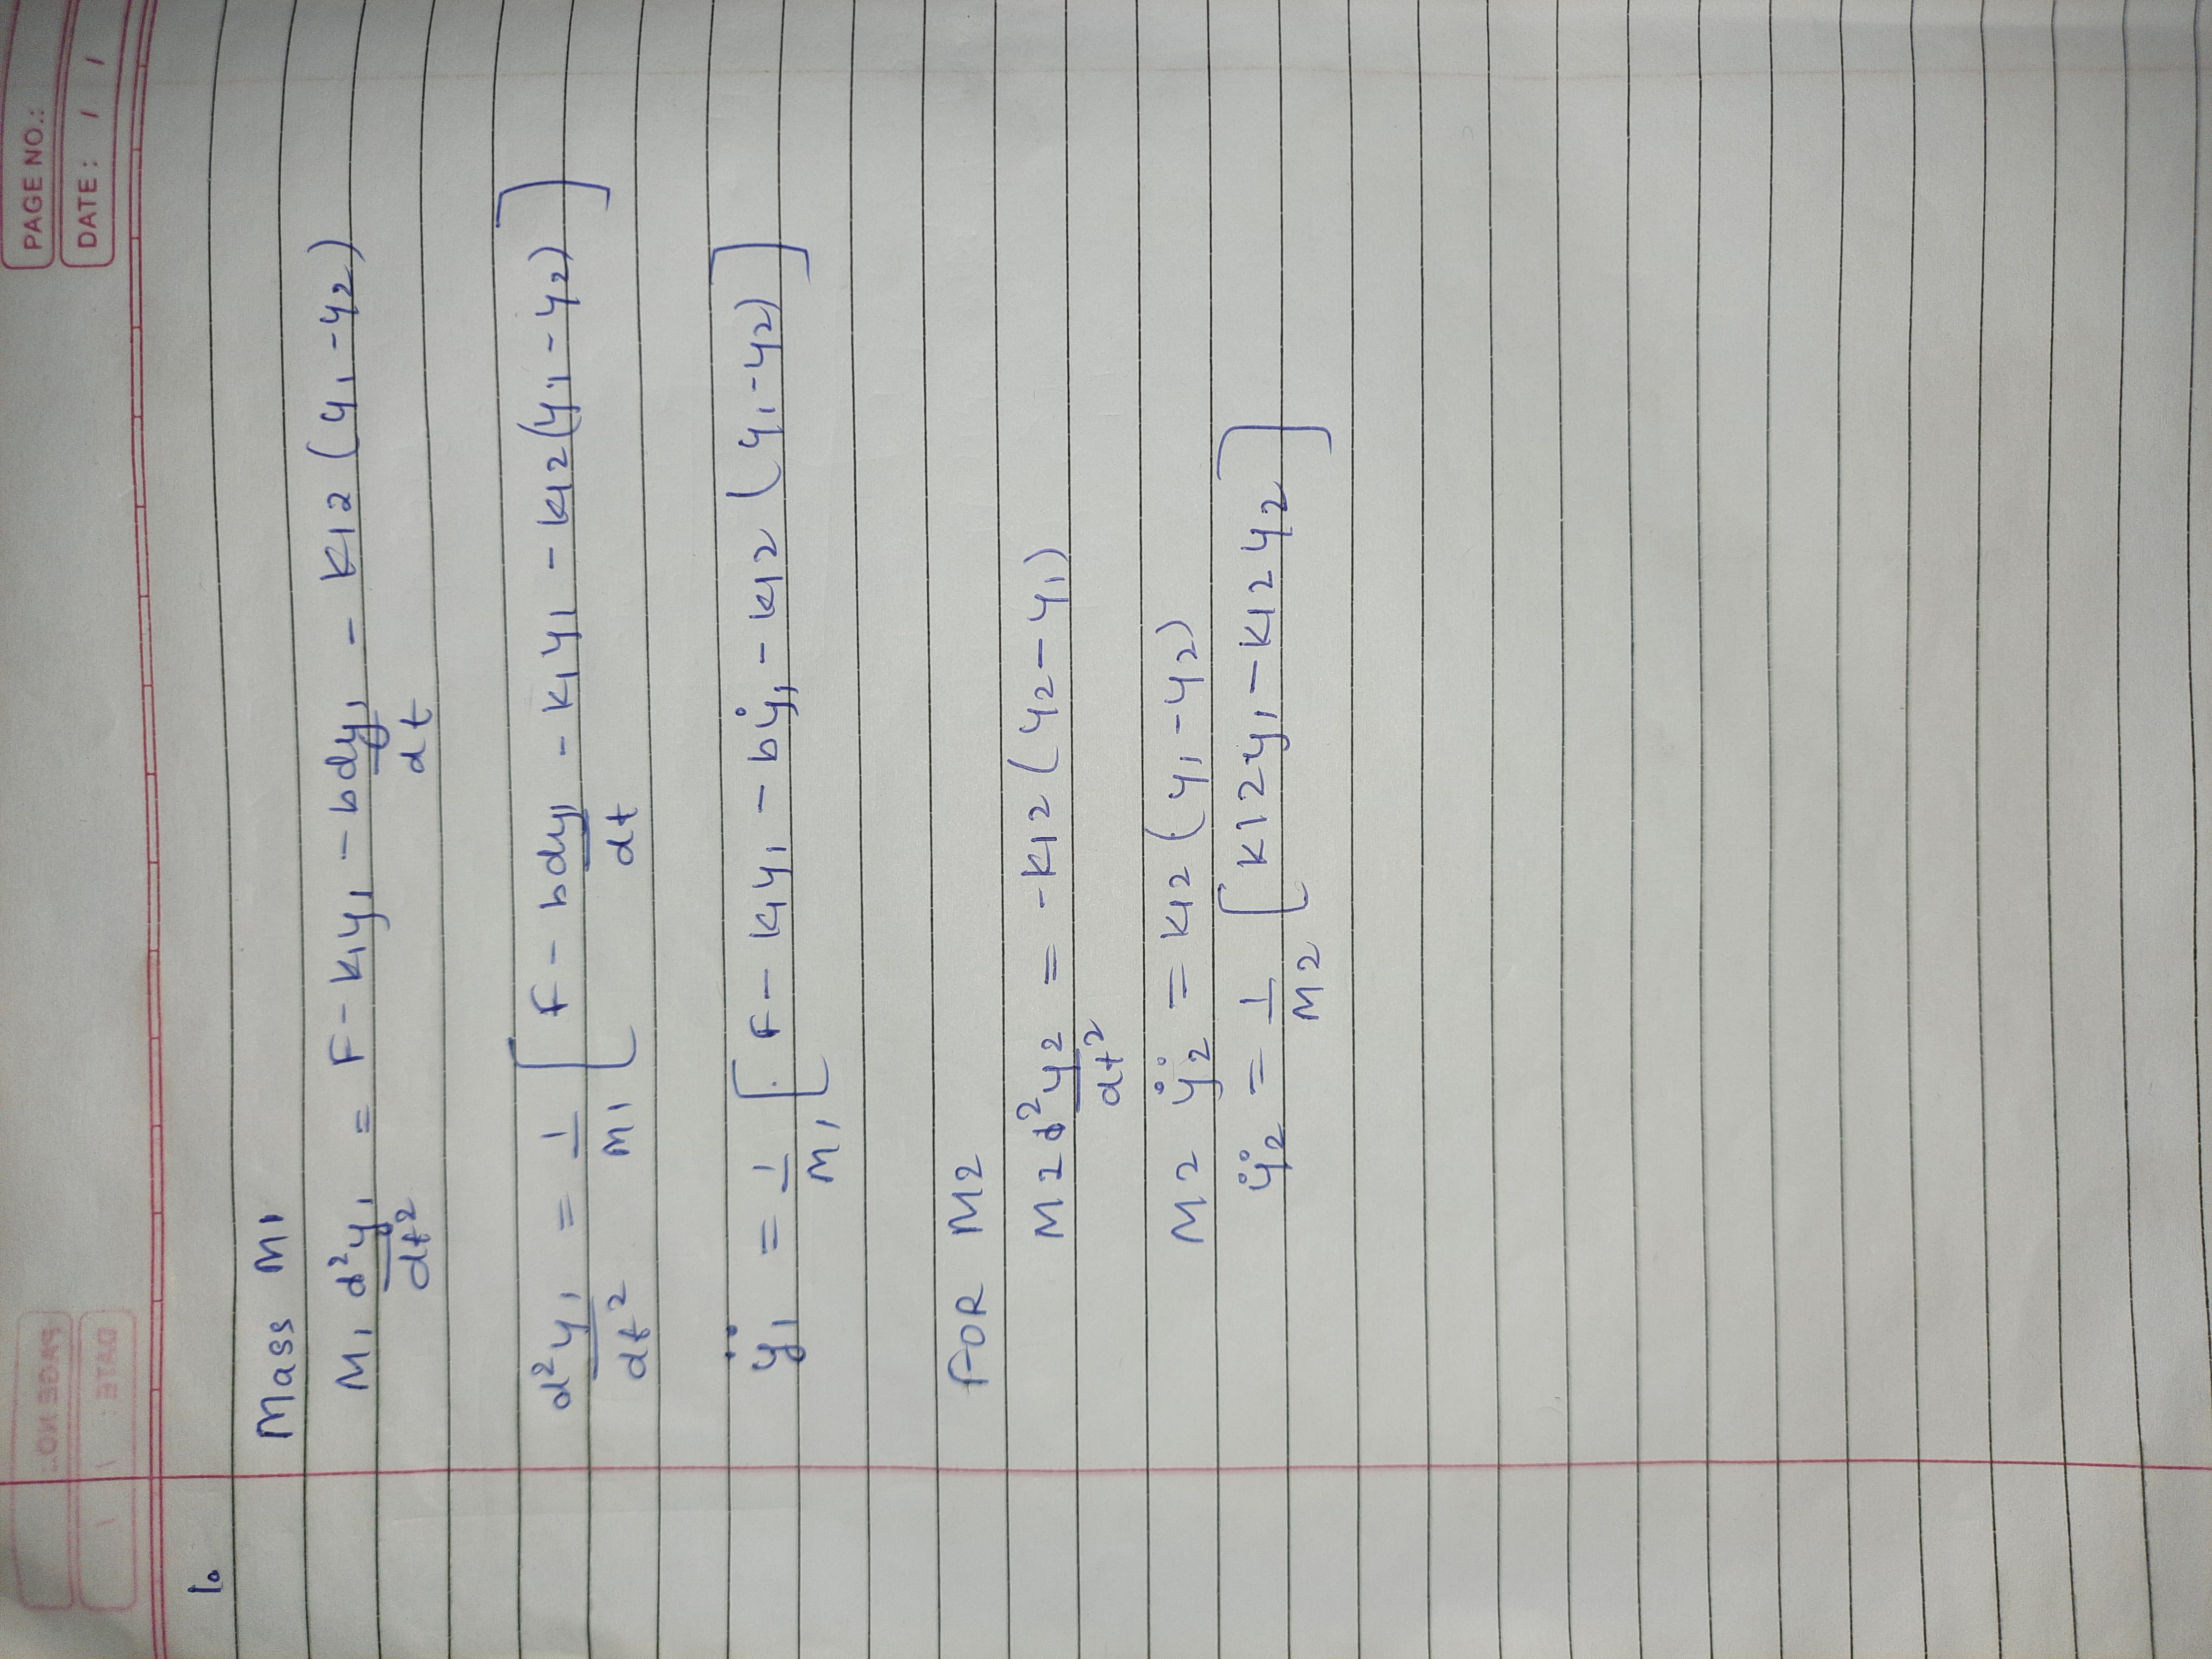 PAGE NO.:
DATE : / /
1.
Mass M1
M1 d²y1/dt² = F - k1y1 - b dy1/dt - K12 (y1 - y2)
d²y1/dt² = 1/M1 [ F - b dy1/dt - k1y1 - k12(y1 - y2) ]
ÿ1 = 1/M1 [ F - k1y1 - bẏ1 - k12 (y1 - y2) ]
FOR M2
M2 d²y2/dt² = -K12 (y2 - y1)
M2 ÿ2 = k12 (y1 - y2)
ÿ2 = 1/M2 [ K12y1 - K12y2 ]